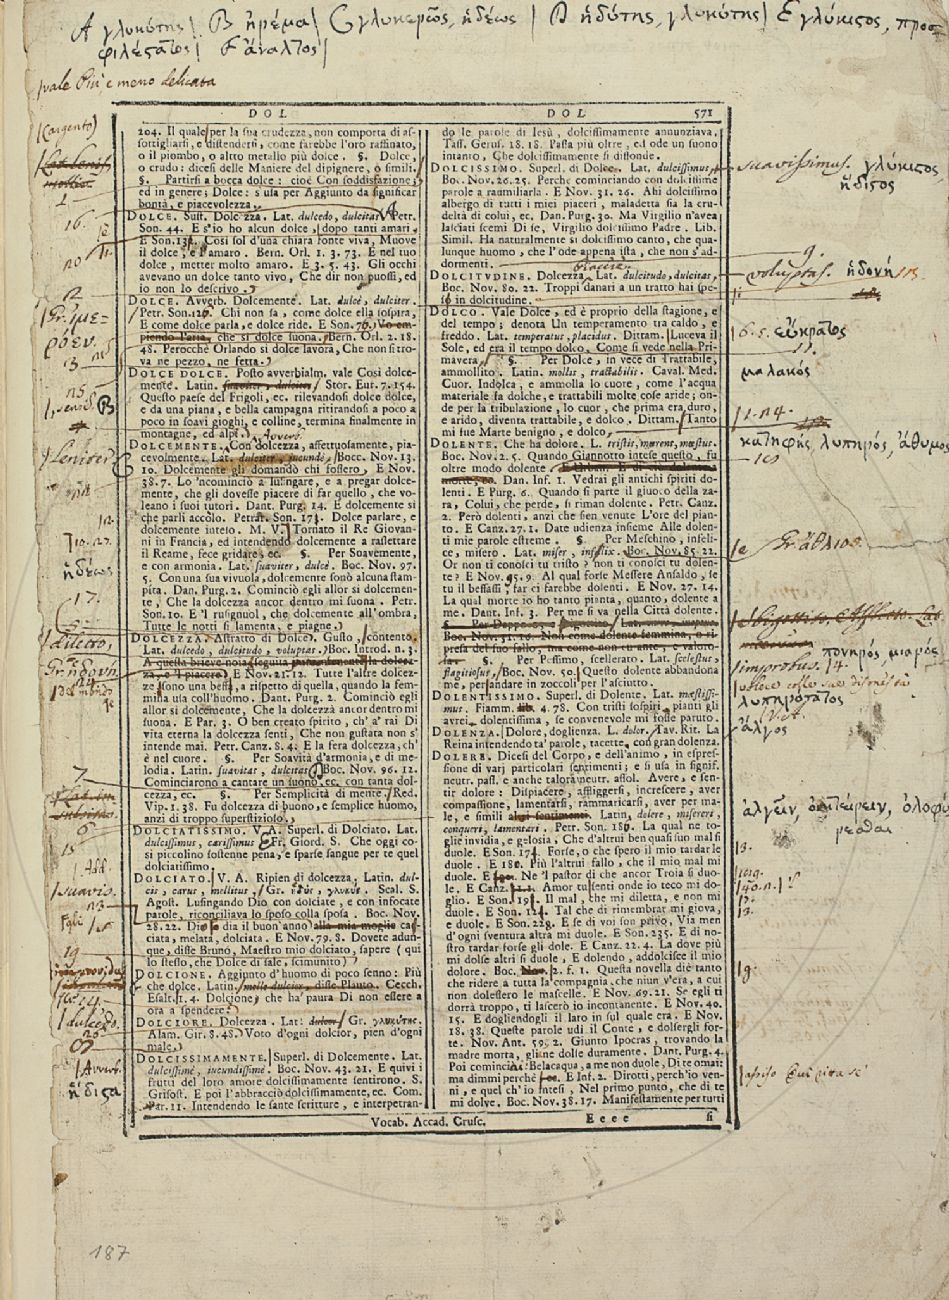 A γλυκύτης| B ἠρέμα| C γλυκερῶς, ἡδέως | D ἡδύτης, γλυκύτης| E γλύκιςος, προσ-
φιλέςατος| F ἄναλτος|
vale Più e meno delicata
DOL DOL 571
(argento)
204. Il quale per la sua crudezza, non comporta di as-
sottigliarsi, e distendersi, come sarebbe l'oro raffinato,
o il piombo, o altro metallo più dolce. §. Dolce,
o crudo: dicesi delle Maniere del dipignere, o simili.
§. Partirsi a bocca dolce: cioè Con soddisfazione;
ed in genere; Dolce: s'usa per Aggiunto da significar
bontà, e piacevolezza.
DOLCE. Sust. Dolcezza. Lat. dulcedo, dulcitas. Petr.
Son. 44. E s'io ho alcun dolce, dopo tanti amari.
E Son. 131. Così sol d'una chiara fonte viva, Muove
il dolce, e l'amaro. Bern. Orl. 1. 3. 73. E nel tuo
dolce, metter molto amaro. E 3. 5. 43. Gli occhi
avevano un dolce tanto vivo, Che dir non puossi, ed
io non lo descrivo.
DOLCE. Avverb. Dolcemente. Lat. dulcè, dulciter.
Petr. Son. 126. Chi non sa, come dolce ella sospira,
E come dolce parla, e dolce ride. E Son. 76. Vo em-
piendo l'aria, che si dolce suona. Bern. Orl. 2. 18.
48. Perocchè Orlando si dolce lavora, Che non si tro-
va ne pezzo, ne fetta.
DOLCE DOLCE. Posto avverbialm. vale Così dolce-
mente. Latin. suaviter, dulciter. Stor. Eur. 7. 154.
Questo paese del Frigoli, ec. rilevandosi dolce dolce,
e da una piana, e bella campagna ritirandosi a poco a
poco in soavi gioghi, e colline, termina finalmente in
montagne, ed alpi.
DOLCEMENTE. Con dolcezza, affettuosamente, pia-
cevolmente. Lat. dulciter, jucundè. Bocc. Nov. 13.
10. Dolcemente gli domandò chi fossero. E Nov.
38. 7. Lo 'ncominciò a lusingare, e a pregar dolce-
mente, che gli dovesse piacere di far quello, che vo-
leano i suoi tutori. Dant. Purg. 14. E dolcemente sì
che parli accòlo. Petrar. Son. 173. Dolce parlare, e
dolcemente inteso. M. V. Tornato il Re Giovan-
ni in Francia, ed intendendo dolcemente a rassettare
il Reame, fece gridare, ec. §. Per Soavemente,
e con armonia. Lat. suaviter, dulcè. Boc. Nov. 97.
5. Con una sua vivuola, dolcemente sonò alcuna stam-
pita. Dan. Purg. 2. Cominciò egli allor sì dolcemen-
te, Che la dolcezza ancor dentro mi suona. Petr.
Son. 10. E 'l rusignuol, che dolcemente all'ombra,
Tutte le notti si lamenta, e piagne.
DOLCEZZA. Astratto di Dolce. Gusto, contento.
Lat. dulcedo, dulcitudo, voluptas. Boc. Introd. n. 3.
A questa brieve noia seguita prestamente la dolcez-
za, e 'l piacere. E Nov. 21. 12. Tutte l'altre dolcez-
ze sono una beffa, a rispetto di quella, quando la fem-
mina usa coll'huomo. Dant. Purg. 2. Cominciò egli
allor sì dolcemente, Che la dolcezza ancor dentro mi
suona. E Par. 3. O ben creato spirito, ch'a' rai Di
vita eterna la dolcezza senti, Che non gustata non s'
intende mai. Petr. Canz. 8. 4. E la fera dolcezza, ch'
è nel cuore. §. Per Soavità d'armonia, e di me-
lodia. Latin. suavitas, dulcitas. Boc. Nov. 96. 12.
Cominciarono a cantare un suono, ec. con tanta dol-
cezza, ec. §. Per Semplicità di mente. Red.
Vip. 1. 38. Fu dolcezza di buono, e semplice huomo,
anzi di troppo superstizioso.
DOLCIATISSIMO. V. A. Superl. di Dolciato. Lat.
dulcissimus, carissimus. Fr. Giord. S. Che oggi co-
si piccolino sostenne pena, e sparse sangue per te quel
dolciatissimo.
DOLCIATO. V. A. Ripien di dolcezza. Latin. dul-
cis, carus, mellitus. Gr. ἡδὺς, γλυκὺς. Scal. S.
Agost. Lusingando Dio con dolciate, e con infocate
parole, riconciliava lo sposo colla sposa. Boc. Nov.
28. 22. Dio dia il buon'anno alla mia moglie cas-
ciata, melata, dolciata. E Nov. 79. 8. Dovete adun-
que, disse Bruno, Maestro mio dolciato, sapere (qui
lo stesso, che Dolce di sale, scimunito)
DOLCIONE. Aggiunto d'huomo di poco senno: Più
che dolce. Latin. melle dulcior, disse Plauto. Cecch.
Esalt. 1. 4. Dolcione, che ha' paura Di non essere a
ora a spendere?
DOLCIORE. Dolcezza. Lat. dulcor. Gr. γλυκύτης.
Alam. Gir. 8. 48. Voto d'ogni dolcior, pien d'ogni
male.
DOLCISSIMAMENTE. Superl. di Dolcemente. Lat.
dulcissimè, jucundissimè. Boc. Nov. 43. 21. E quivi i
frutti del loro amore dolcissimamente sentirono. S.
Grisost. E poi l'abbracciò dolcissimamente, ec. Com.
Par. 11. Intendendo le sante scritture, e interpretan-
do le parole di Iesù, dolcissimamente annunziava.
Tass. Gerus. 18. 18. Passa più oltre, ed ode un suono
intanto, Che dolcissimamente si diffonde.
DOLCISSIMO. Superl. di Dolce. Lat. dulcissimus.
Boc. Nov. 26. 25. Perche cominciando con dolcissime
parole a raumiliarla. E Nov. 31. 26. Ahi dolcissimo
albergo di tutti i miei piaceri, maladetta sia la cru-
deltà di colui, ec. Dan. Purg. 30. Ma Virgilio n'avea
lasciati scemi Di se, Virgilio dolcissimo Padre. Lib.
Simil. Ha naturalmente sì dolcissimo canto, che qua-
lunque huomo, che l'ode appena ista, che non s'ad-
dormenti.
DOLCITUDINE. Dolcezza. Lat. dulcitudo, dulcitas.
Boc. Nov. 80. 22. Troppi danari a un tratto hai spe-
si in dolcitudine.
DOLCO. Vale Dolce, ed è proprio della stagione, e
del tempo; denota Un temperamento tra caldo, e
freddo. Lat. temperatus, placidus. Dittam. Luceva il
Sole, ed era il tempo dolco. Come si vede nella Pri-
mavera. §. Per Dolce, in vece di Trattabile,
ammollito. Latin. mollis, tractabilis. Caval. Med.
Cuor. Indolca, e ammolla lo cuore, come l'acqua
materiale fa dolche, e trattabili molte cose aride; on-
de per la tribulazione, lo cuor, che prima era duro,
e arido, diventa trattabile, e dolco. Dittam. Tanto
mi fue Marte benigno, e dolco.
DOLENTE. Che ha dolore. L. tristis, mœrent, mœstus.
Boc. Nov. 2. 5. Quando Giannotto intese questo, fu
oltre modo dolente.
Dan. Inf. 1. Vedrai gli antichi spiriti do-
lenti. E Purg. 6. Quando si parte il giuoco della za-
ra, Colui, che perde, si riman dolente. Petr. Canz.
2. Però dolenti, anzi che sien venute L'ore del pian-
to. E Canz. 27. 1. Date udienza insieme Alle dolen-
ti mie parole estreme. §. Per Meschino, infeli-
ce, misero. Lat. miser, infelix. Boc. Nov. 85. 22.
Or non ti conosci tu tristo? non ti conosci tu dolen-
te? E Nov. 95. 9. Al qual forse Messere Ansaldo, se
tu il beffassi, far ci farebbe dolenti. E Nov. 27. 14.
La qual morte io ho tanto pianta, quanto, dolente a
me. Dant. Inf. 3. Per me si va nella Città dolente.
Boc. Nov. 31. 16. Non come dolente femmina, o ri-
presa del suo fallo, ma come non curante, e valoro-
§. Per Pessimo, scellerato. Lat. scelestus,
flagitiosus. Boc. Nov. 50. Questo dolente abbandona
me, per andare in zoccoli per l'asciutto.
DOLENTISSIMO. Superl. di Dolente. Lat. mœstissi-
mus. Fiamm. lib. 4. 78. Con tristi sospiri, pianti gli
avrei, dolentissima, se convenevole mi fosse paruto.
DOLENZA. Dolore, doglienza. L. dolor. Tav. Rit. La
Reina intendendo ta' parole, tacette, con gran dolenza.
DOLERE. Dicesi del Corpo, e dell'animo, in espres-
sione di varj particolari sentimenti; e si usa in signif.
neutr. pass. e anche talora neutr. assol. Avere, e sen-
tir dolore: Dispiacere, affliggersi, increscere, aver
compassione, lamentarsi, rammaricarsi, aver per ma-
le, e simili altri sentimenti. Latin. dolere, misereri,
conqueri, lamentari. Petr. Son. 186. La qual ne to-
glie invidia, e gelosia, Che d'altrui ben quasi suo mal si
duole. E Son. 174. Forse, o che spero il mio tardar le
duole. E 180. Più l'altrui fallo, che il mio mal mi
duole. E Ne 'l pastor di che ancor Troia si duo-
le. E Canz. Amor tu senti onde io teco mi do-
glio. E Son. 191. Il mal, che mi diletta, e non mi
duole. E Son. 124. Tal che di rimembrar mi giova,
e duole. E Son. 229. E se di voi son privo, Via men
d'ogni sventura altra mi duole. E Son. 235. E di no-
stro tardar forse gli dole. E Canz. 22. 4. La dove più
mi dolse altri si duole, E dolendo, addolcisce il mio
dolore. Boc. Nov. 2. f. 1. Questa novella diè tanto
che ridere a tutta la compagnia, che niun v'era, a cui
non dolessero le mascelle. E Nov. 69. 21. Se egli ti
dorrà troppo, ti lascerò io incontanente. E Nov. 40.
15. E dogliendogli il lato in sul quale era. E Nov.
18. 38. Queste parole udì il Conte, e dolsergli for-
te. Nov. Ant. 59. 2. Giunto Ipocras, trovando la
madre morta, gliene dolle duramente. Dant. Purg. 4.
Poi cominciai: Belacqua, a me non duole, Di te omai:
ma dimmi perchè ec. E Inf. 2. Dirotti, perch'io ven-
ni, e quel ch'io intesi, Nel primo punto, che di te
mi dolve. Boc. Nov. 38. 17. Manifestamente per tutti
Vocab. Accad. Crusc. Eeee si
suavissimus. γλύκιςος,
ἥδιςος
voluptas. ἡδονή
εὔκρατος
μαλακός
κατηφής, λυπηρός, ἄθυμος
Gr. ἄθλιος
πονηρός, μιαρός
improbus. 14.
λυπηρότατος
ἄλγος
ἀλγεῖν, οἰκτείρειν, ὀλοφύ-
ρεσθαι
Gr. ἠρέ-
μα
leniter
ἡδέως
Gr. ἡδονή.
suavis.
dulcedo.
Avverb.
ἥδιςα
187